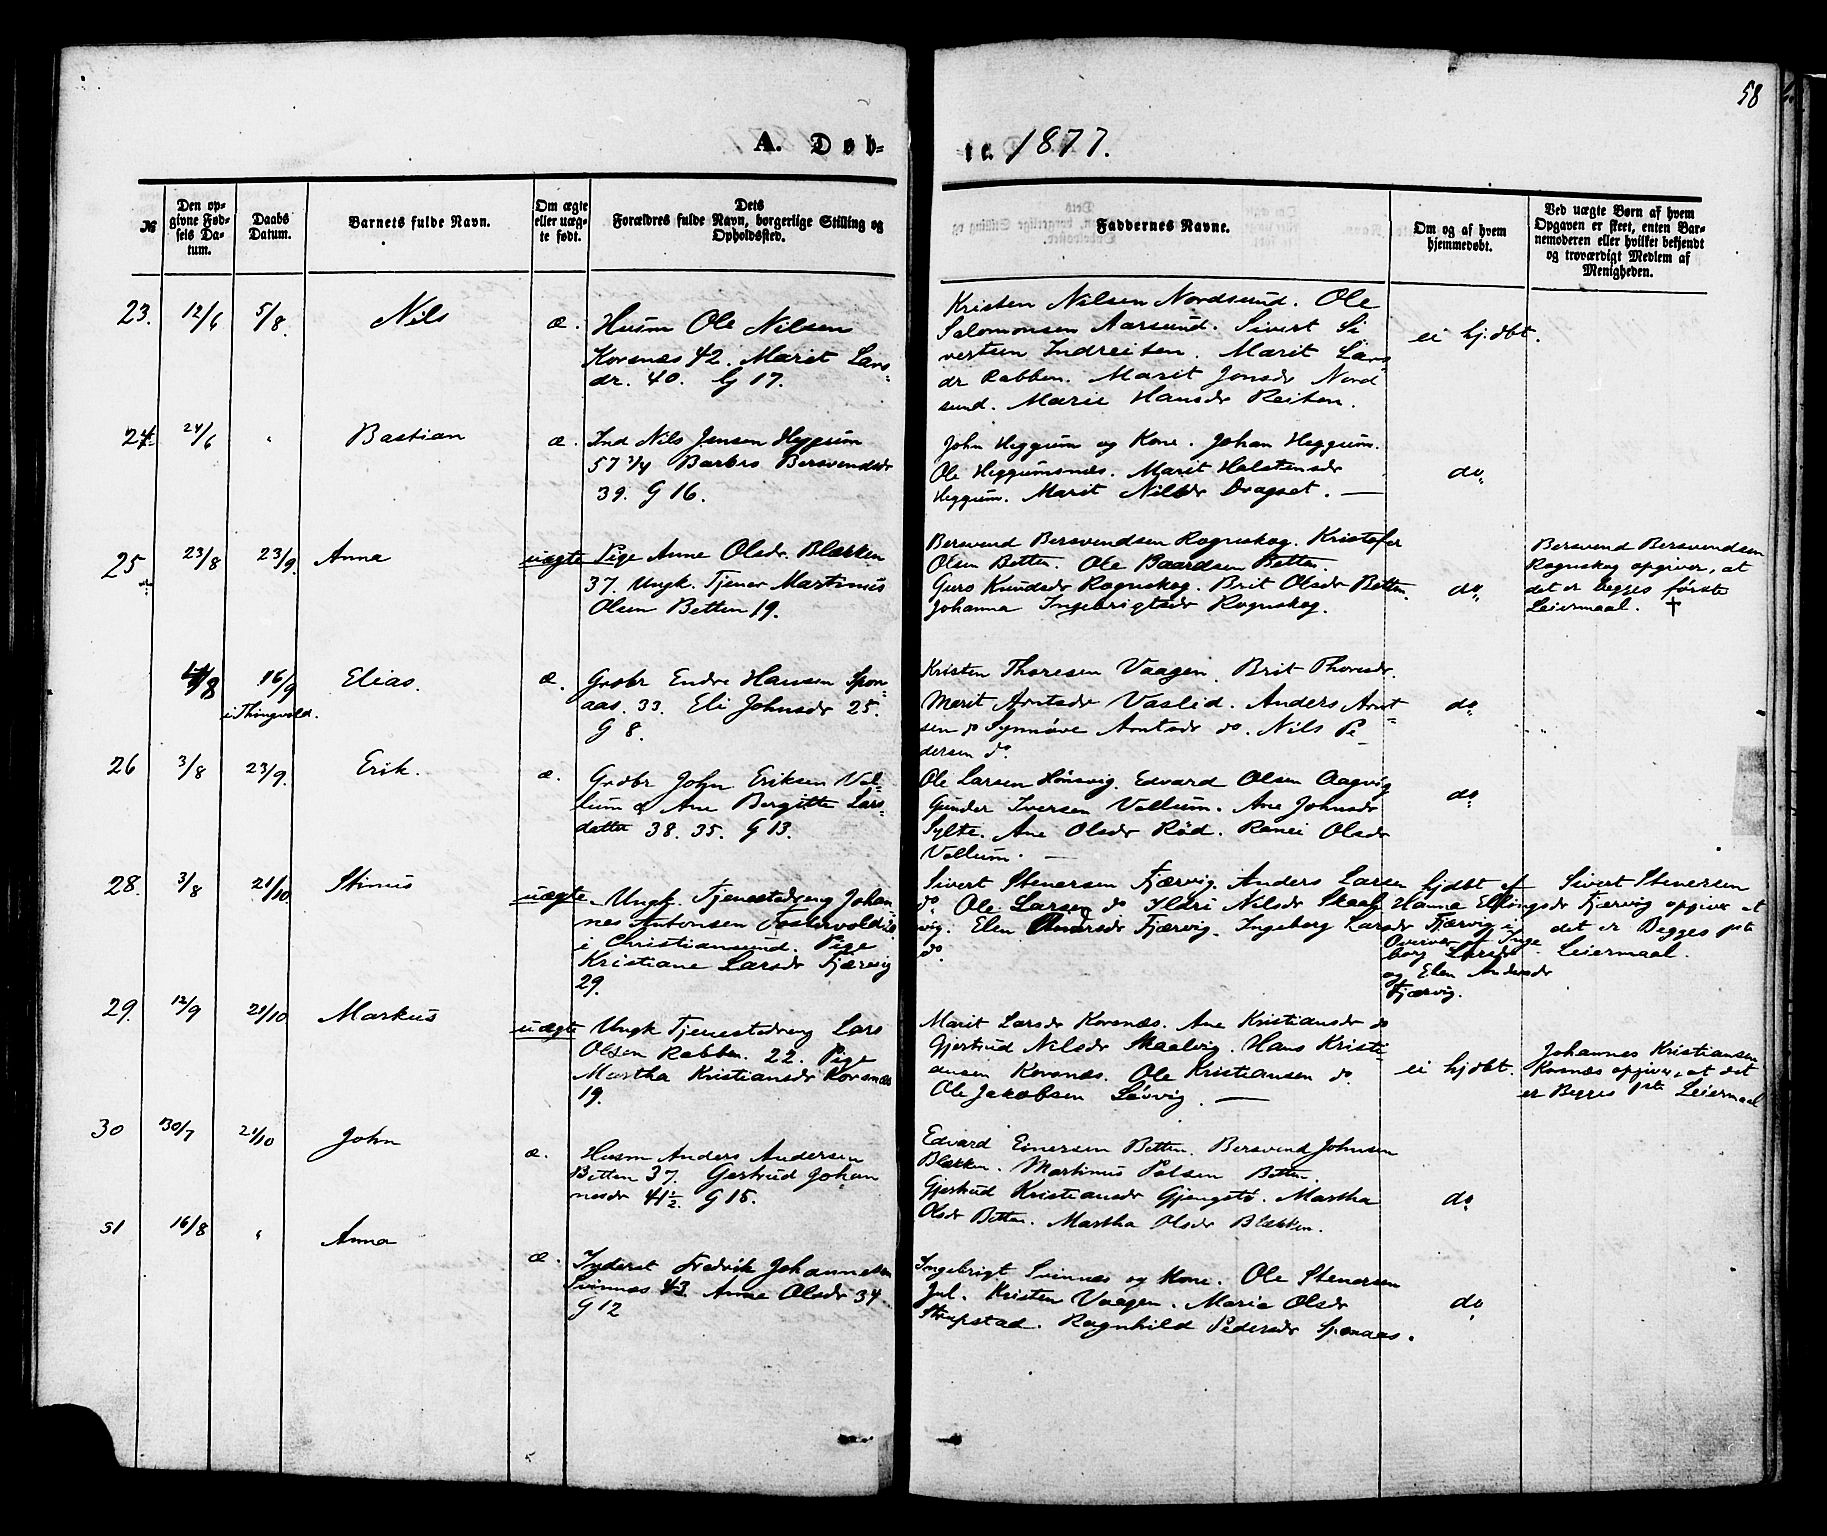 58
A. Døb-
te. 1877.
№
Den op-
givne Fød-
sels Da-
tum.
Daabs
Datum.
Barnets fulde Navn.
Om ægte
eller uæg-
te født.
Dets
Forældres fulde Navn, borgerlige Stilling og
Opholdssted.
Faddernes Navne.
Om og af hvem
hjemmedøbt.
Ved uægte Børn af hvem
Opgaven er skeet, enten Bar-
nemoderen eller hvilket bekjendt
og troværdigt Medlem af
Menigheden.
23. 12/6 5/8. Nils æ.
Husm Ole Nilsen
Korsnæs 42. Marit Lars-
dr. 40. G 17.
Kristen Nilsen Nordsund. Ole
Salomonsen Aarsund. Sivert Si
vertsen Indreiten. Marit Lars
dr Rabben. Marit Jonsdr Nord
sund. Marie Hansdr Reiten.
ei hj.dbt.
24. 24/6 " Bastian æ.
Ind Nils Jensen Heggum
57 3/4 Barbro Bersvendsdr
39. G 16.
John Heggum og Kone. Johan Heggum.
Ole Heggumsnæs. Marit Halstensdr
Heggum. Marit Nilsdr Dragset. —
do
25 23/8 23/9. Anna uægte
Pige Anne Olsdr. Blækken
37. Ungk. Tjener Martinus
Olsen Betten 19.
Bersvend Bersvendsen Rognskog. Kristofer
Olsen Betten. Ole Baardsen Betten.
Guro Knudsdr Rognskog. Brit Olsdr Betten.
Johanna Ingebrigtsdr Rognskog.
do
Bersvend Bersvendsen
Rognskog opgiver, at
det er begges første
Leiermaal. †
/8 16/9 Elias. æ.
i Thingvold.
Grdbr Endre Hansen Spon-
aas. 33. Eli Johnsdr 25.
G 8.
Kristen Thoresen Vaagen. Brit Thoresdr.
Marit Arntsdr Vaslid. Anders Arnt-
sen do Synnøve Arntsdr do. Nils Pe
dersen do
do
26 3/8 23/9. Erik. æ.
Grdbr John Eriksen Vol-
lum & Ane Bergitte Lars-
datter 38. 35. G 13.
Ole Larsen Hønsvig. Edvard Olsen Aagvig
Gunder Iversen Vollum. Ane Johnsdr
Sylte. Ane Olsdr Rød. Ranei Olsdr
Vollum. —
do
28. 3/8 21/10 Stinus uægte
Ungk. Tjenestedreng Johan
nes Antonsen Fostervold
i Christiansund. Pige
Kristiane Larsdr Fjærvig
29.
Sivert Stenersen Fjærvig. Anders Larsen
do. Ole Larsen do Ildri Nilsdr Skaal
vig. Elen Andersdr Fjærvig. Ingeborg Larsdr
do.
hjdbt af
Hanna Ellingsdr
Fjærvig
Overvær af Inge
borg Larsdr
og Elen Andersdr
Fjærvig.
Sivert Stenersen
Fjærvig opgiver at
det er Begges 1ste
Leiermaal.
29. 12/9 21/10 Markus uægte
Ungk Tjenestedreng Lars
Olsen Rabben. 22. Pige
Martha Kristiansdr Korsnæs
19.
Marit Larsdr Korsnæs. Ane Kristiansdr do
Gjertrud Nilsdr Skaalvig. Hans Kristi-
ansen Korsnæs. Ole Kristiansen do.
Ole Jakobsen Løvvig. —
ei hjdbt.
Johannes Kristiansen
Korsnæs opgiver, at det
er Begges 1ste Leiermaal
30 30/7 21/10 John æ.
Husm Anders Andersen
Betten 37. Gertrud Johan
nesdr 41½. G 15.
Edvard Einersen Betten. Bersvend Johnsen
Blækken. Martinus Polsen Betten.
Gjertrud Kristiansdr Gjengstø. Martha
Olsdr Betten. Martha Olsdr Blækken.
do
31 16/8 " Anna æ.
Inderst Fredrik Johannesen
Svinnæs 43. Anne Olsdr 34
G 12
Ingebrigt Svinnæs og Kone. Ole Stenersen
Jul. Kristen Vaagen. Marie Olsdr
Strupstad. Ragnhild Pedersdr Sponaas.
do